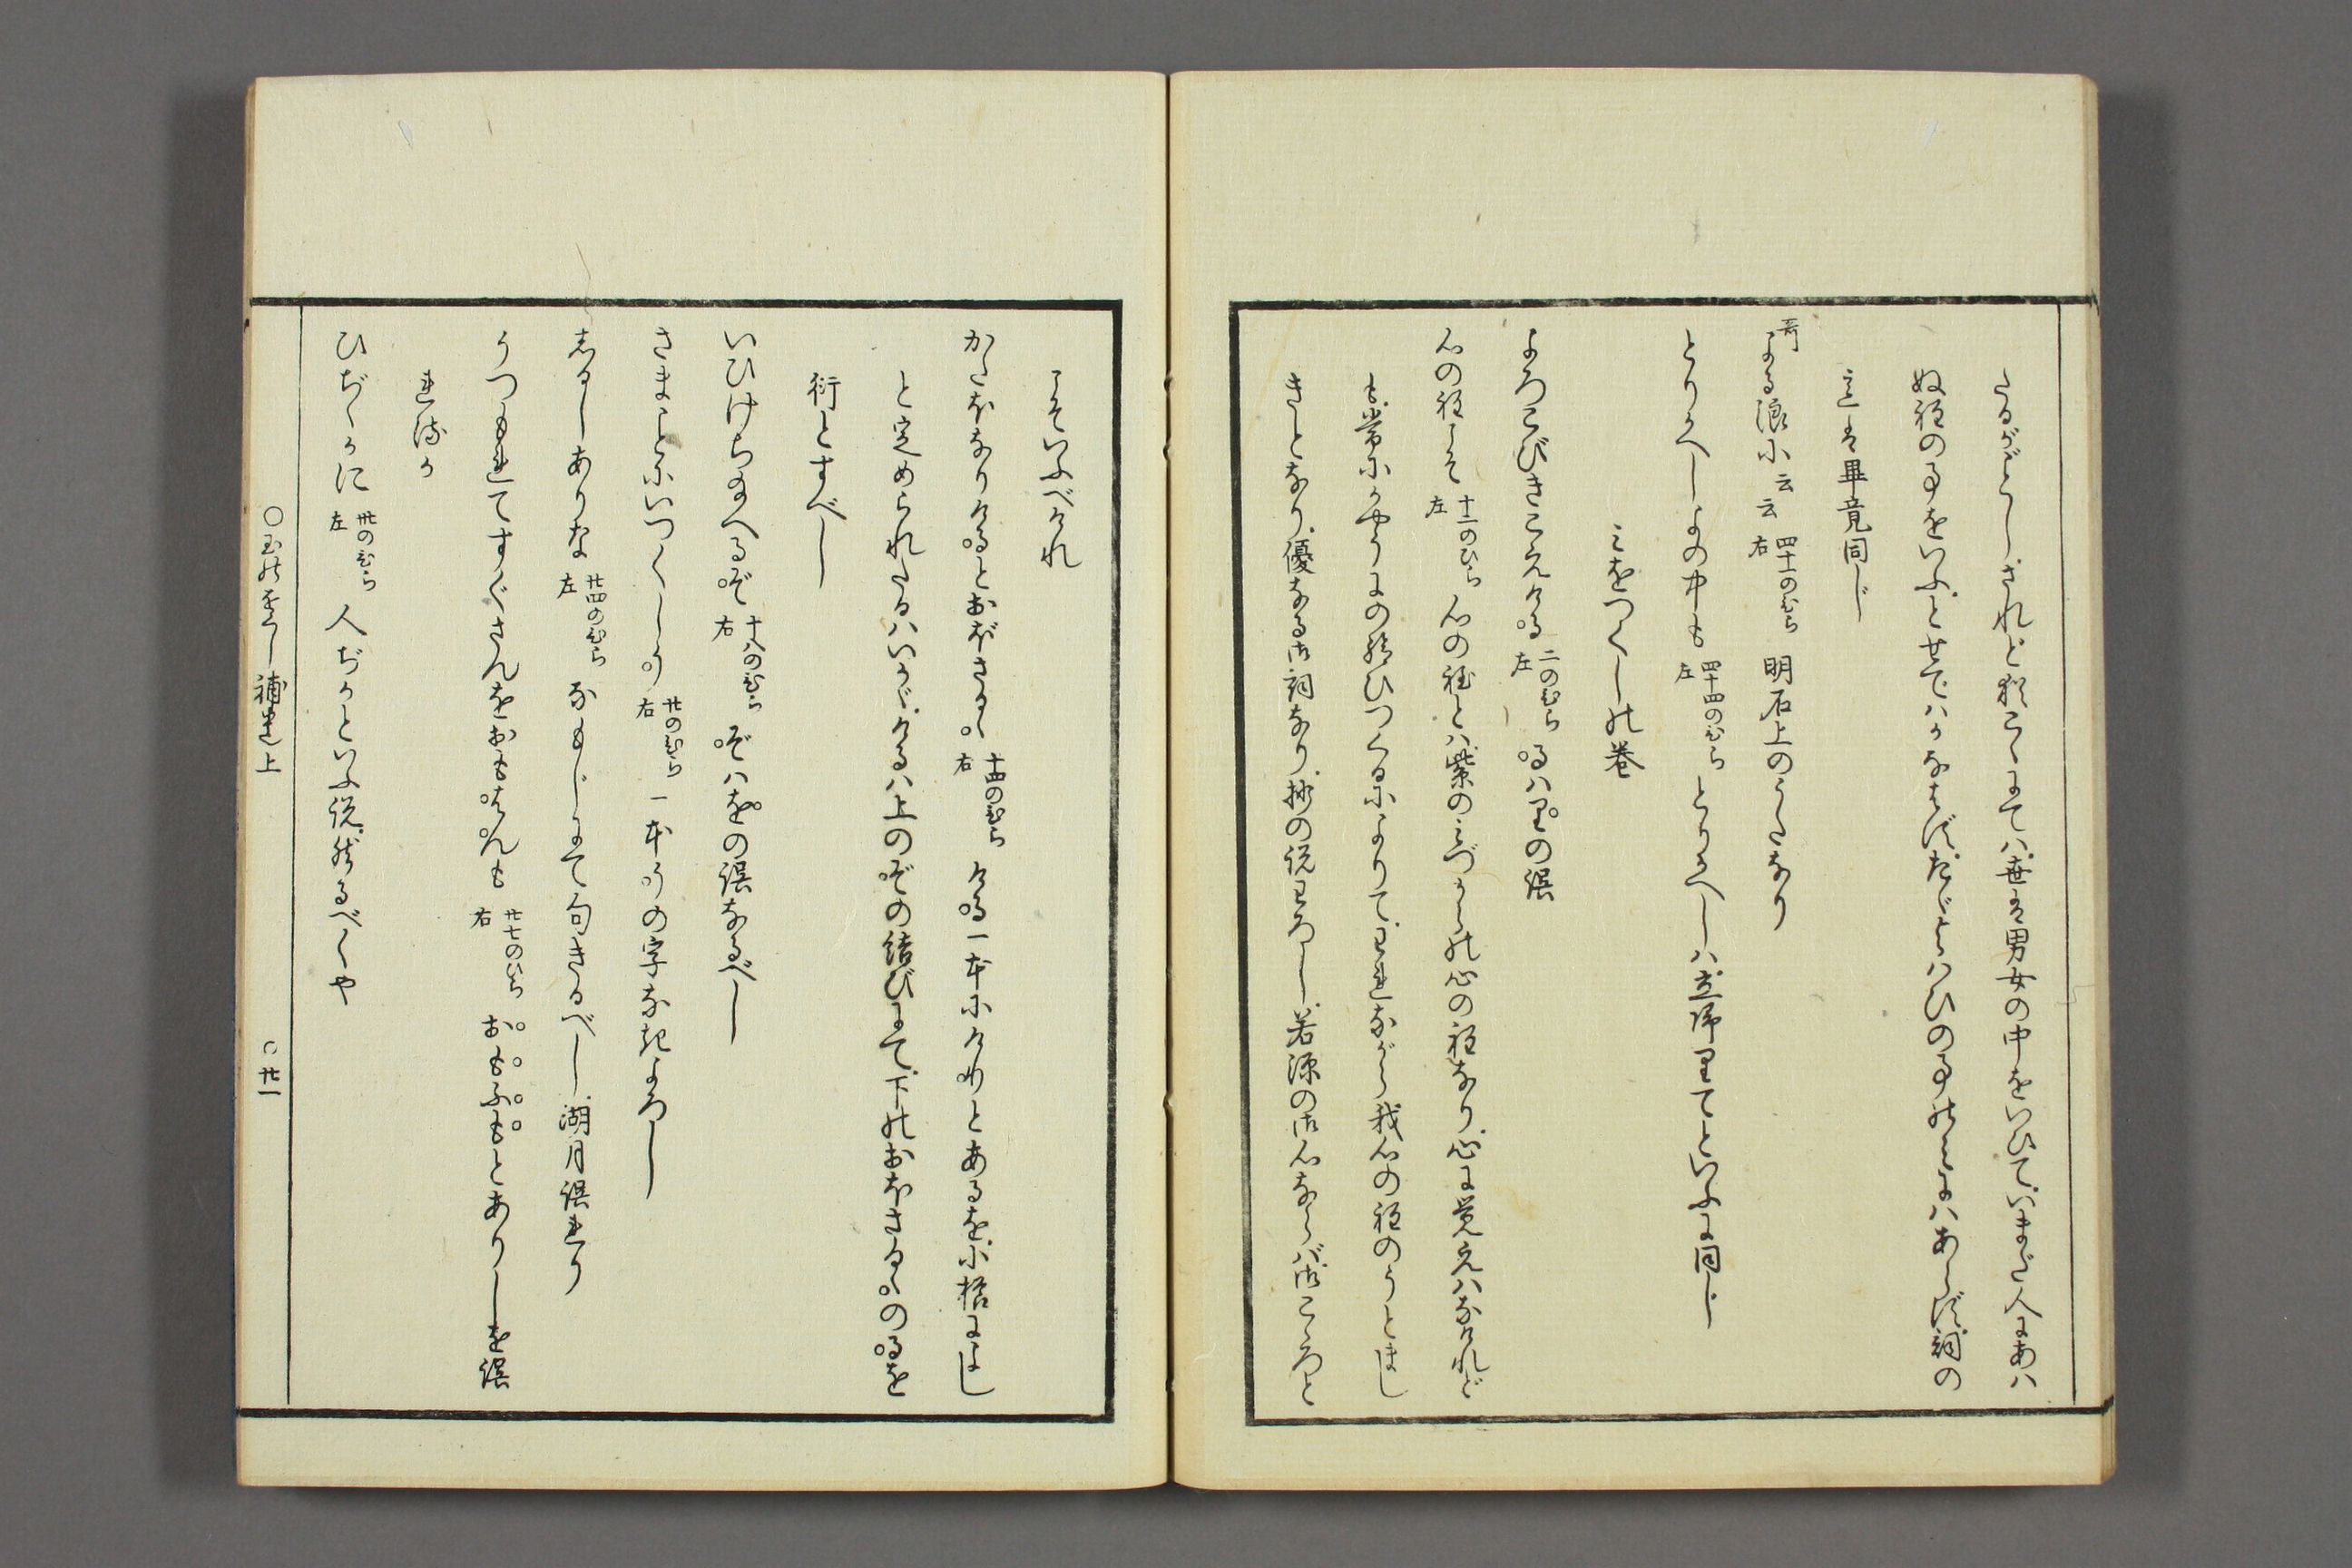 たるがごとし、されど猶こゝにては、世は男女の中をいひて、いまだ人にあは
ぬ程の事をいふ、とせではかなはず、たゞよはひの事のみにはあらず、詞の
意は畢竟同じ
哥よる浪に云云 四十一のひら右 明石上のうたなり
とりかへしよの中も 四十四のひら左 とりかへしは、立帰りてといふに同じ
みをつくしの巻
よろこびきこえける 二のひら左 るはりの誤
心の程こそ 十二のひら左 心の程とは、紫のみづからの心の程なり、心に覚えはなけれど
も、常にかやうにの給ひつくるによりて、われながら我心の程のうとまし
きとなり、優なる御詞なり、抄の説わろし、若源の御心ならば、御こゝろと
こそいふべけれ
かたほなりけるとおぼさるゝ 十四のひら右 ける一本にけりとあるを、小櫛によし
と定められたるはいかゞ、けるは上のぞの結びにて、下のおぼさるゝのるを
衍とすべし
いひけち給へるぞ 十八のひら右 ぞはをの誤なるべし
さまことにいつくしう 廿のひら右 一本うの字なきよろし
しるしありな 廿四のひら左 なもじにて句きるべし、湖月誤れり
うつもれてすぐさんをおもはんも 廿七のひら右 おもふもとありしを誤
れるか
ひぢゝかに 卅のひら左 人ぢかといふ説、然るべくや
○玉のをぐし補遺上 ○廿一